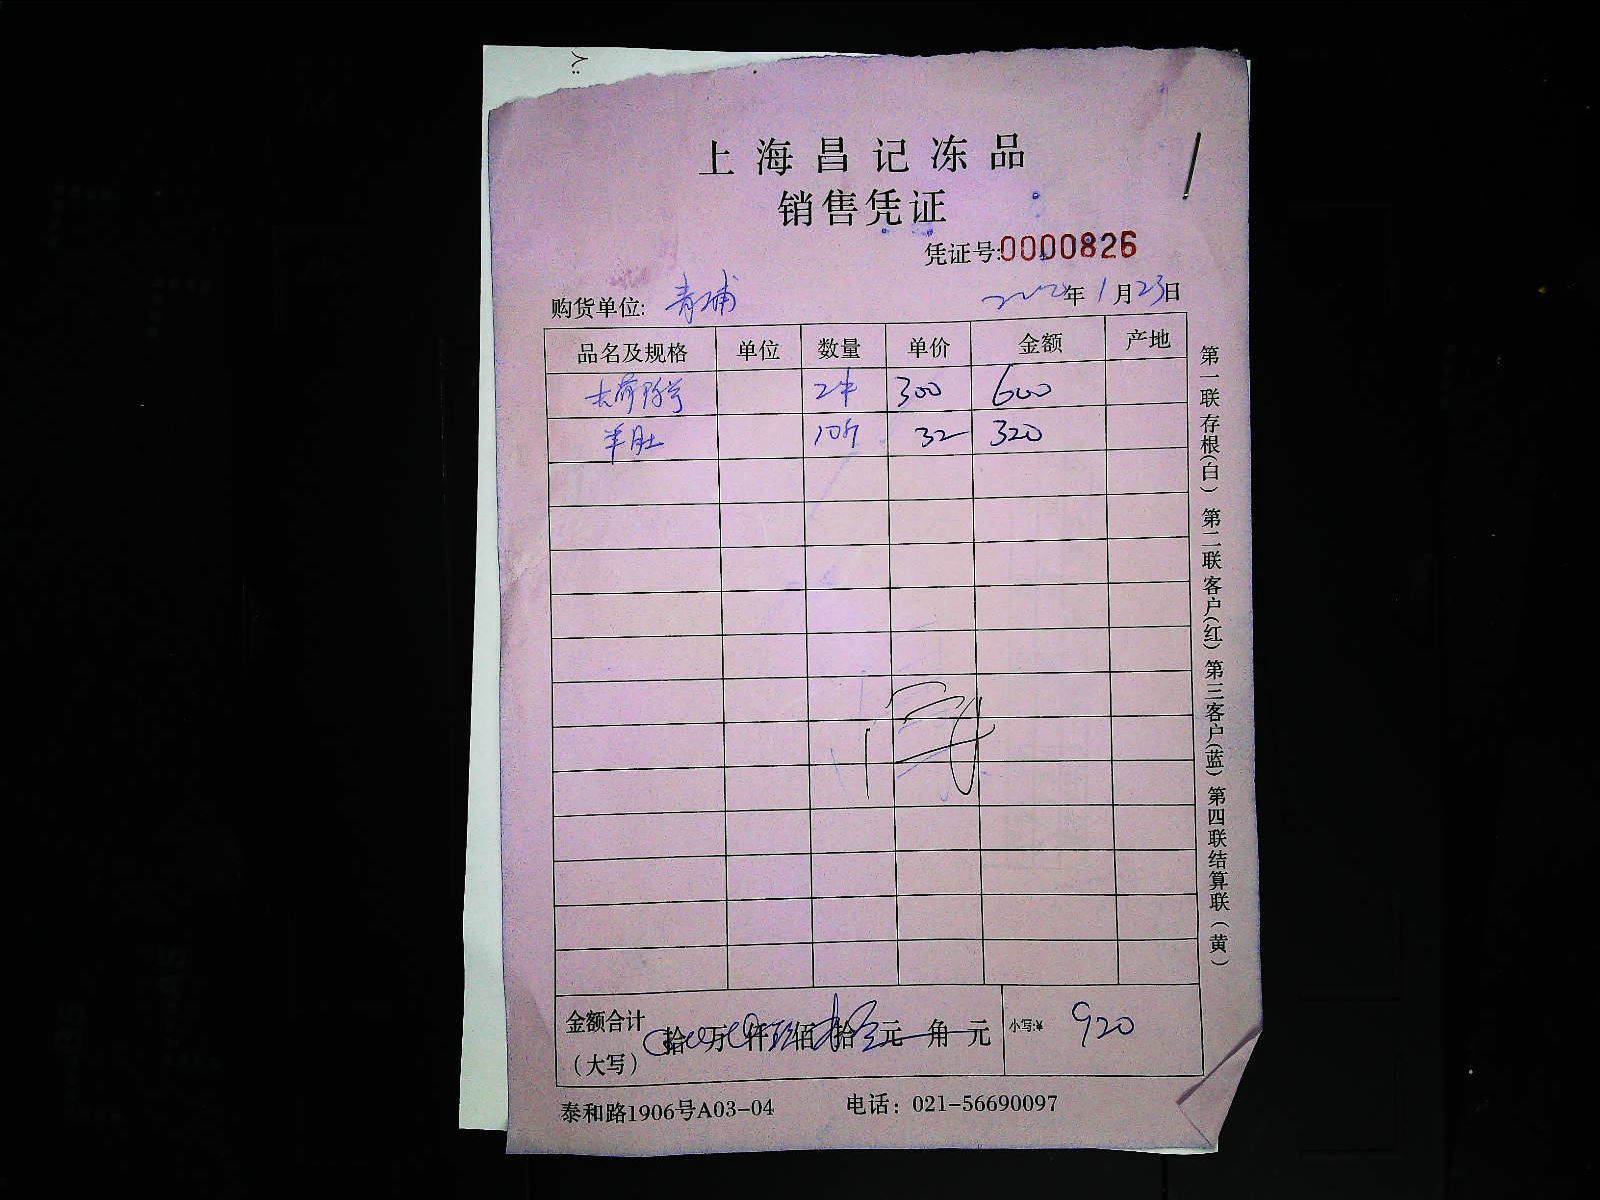 上海昌记冻品
销售凭证
凭证号:0000826
购货单位: 青浦 2020年1月23日
品名及规格 单位 数量 单价 金额 产地
300 600
羊肚 10斤 32 320
金额合计 拾 万 仟 佰 拾 元 角 元 小写:¥ 920
(大写)
泰和路1906号A03-04 电话: 021-56690097
第一联存根(白) 第二联客户(红) 第三客户(蓝) 第四联结算联(黄)